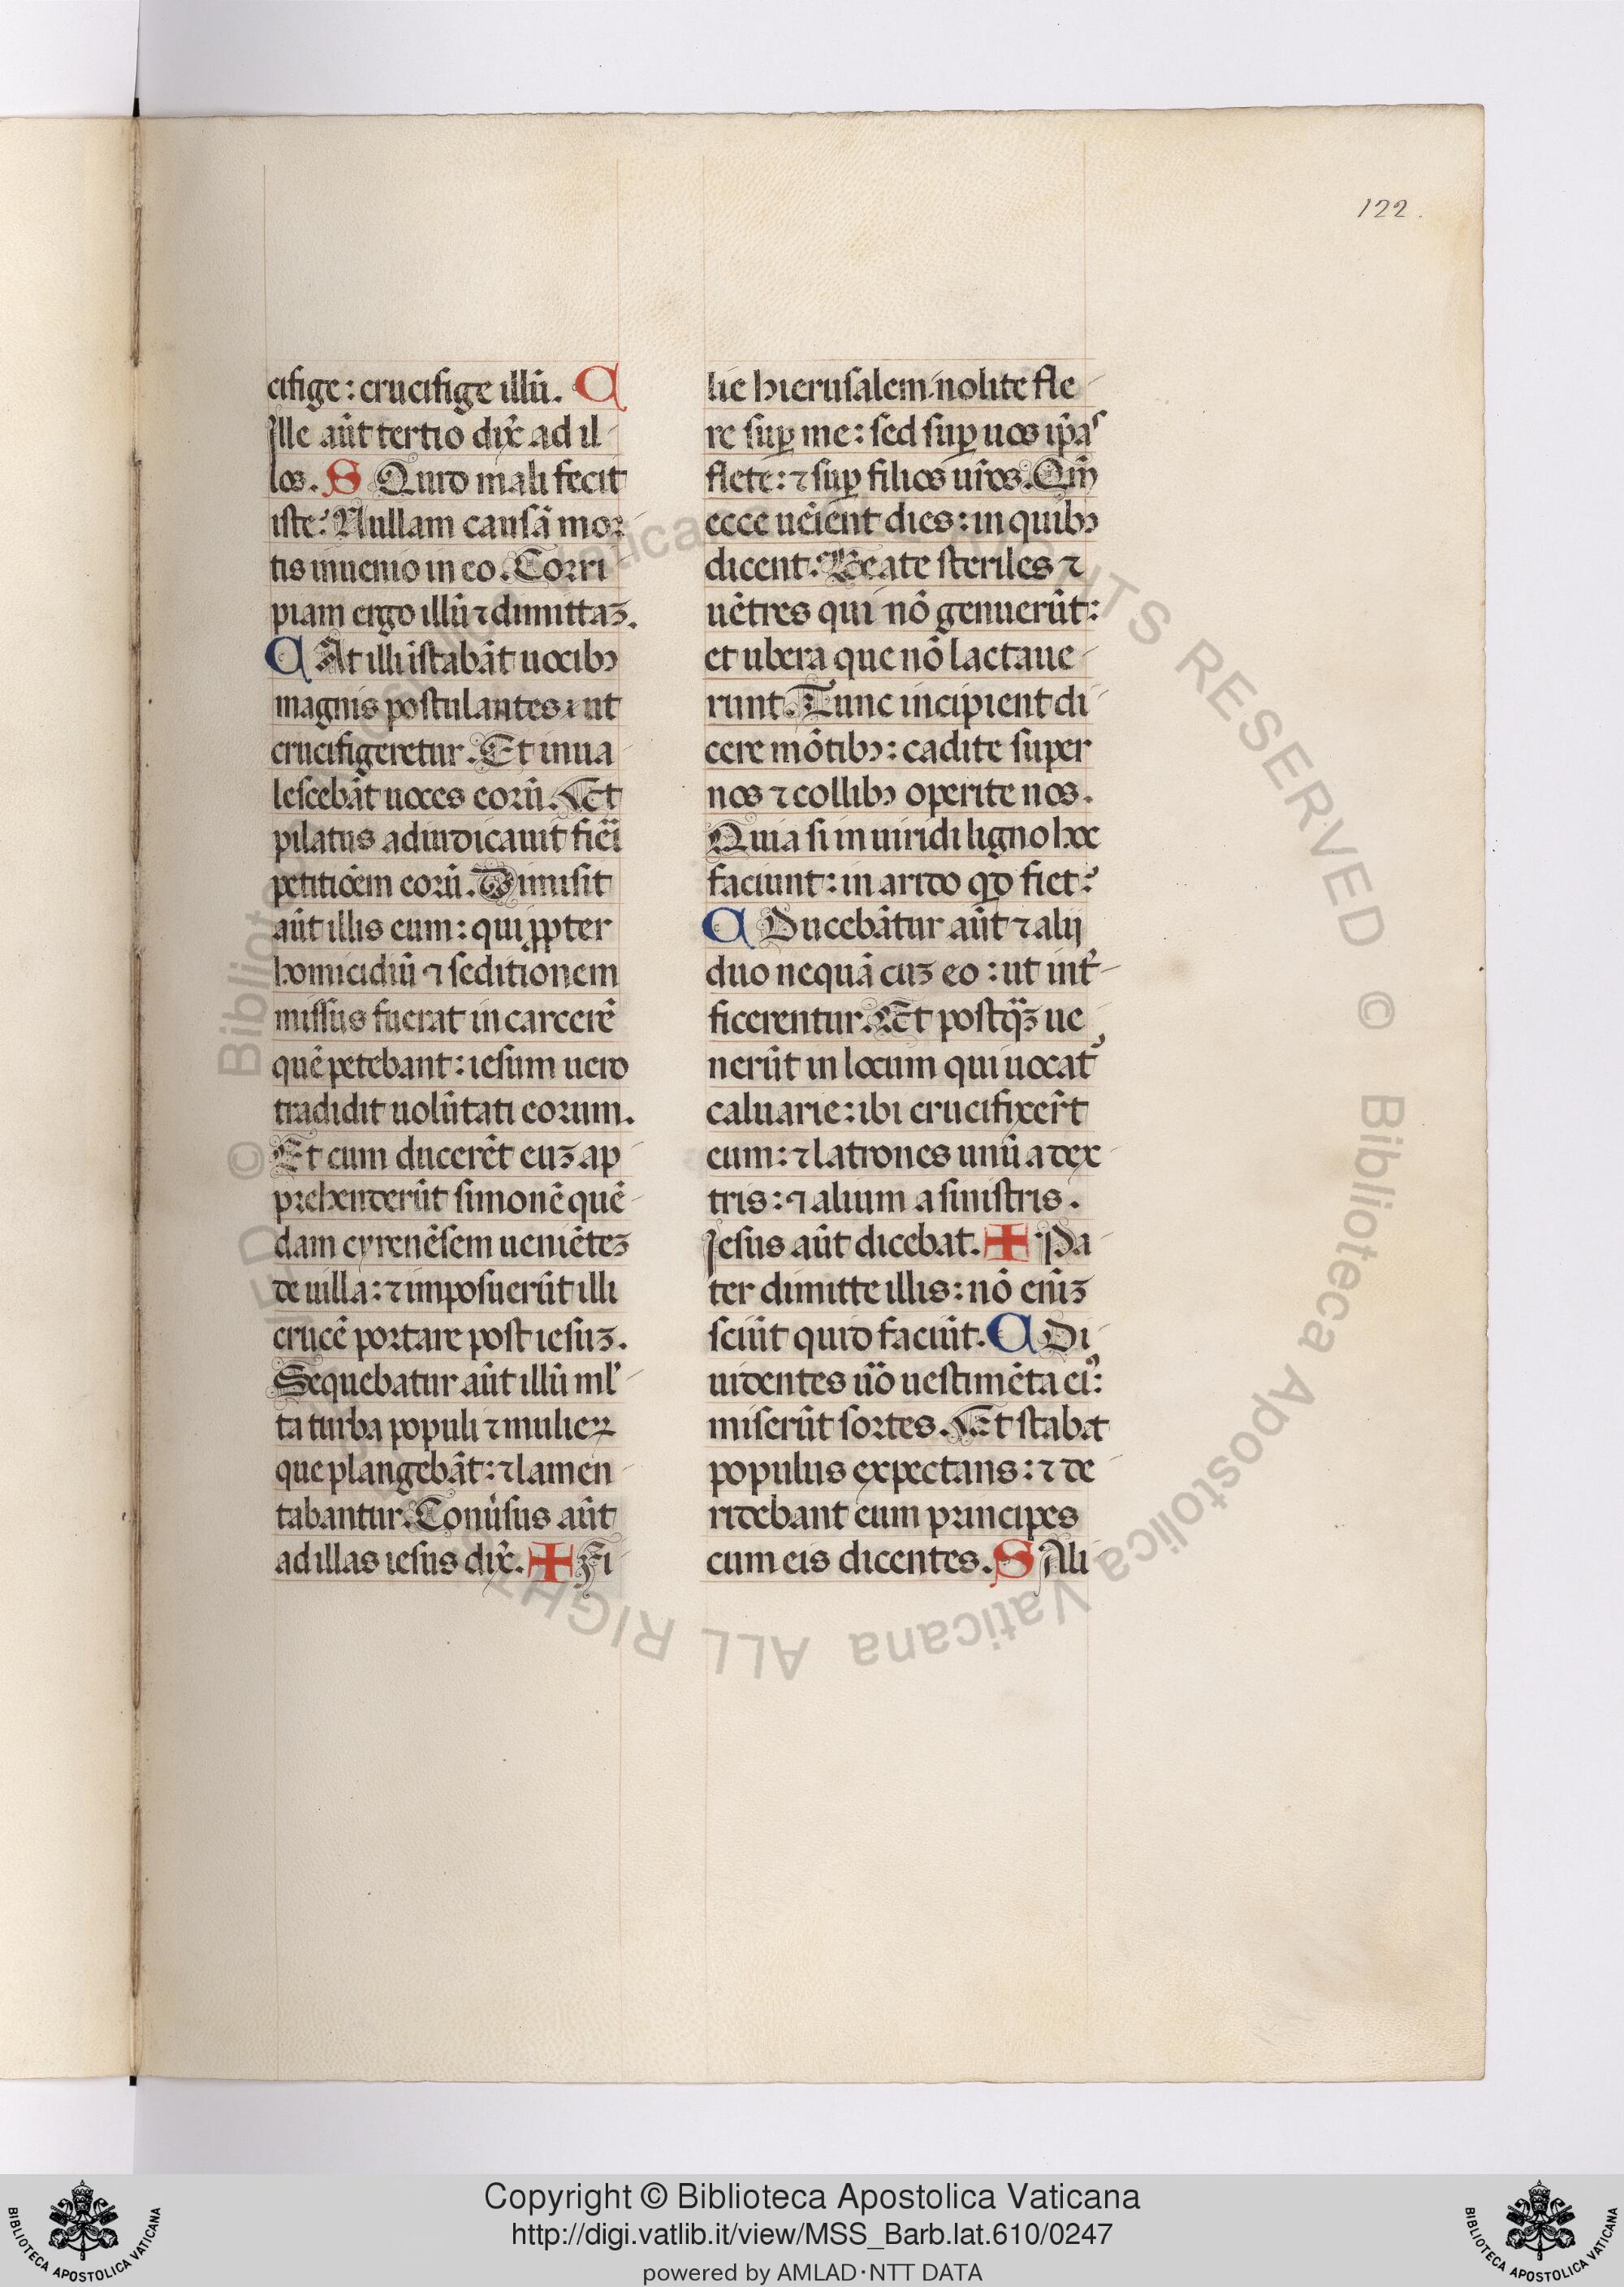 122.
cifige: crucifige illũ. C
Ille aũt tertio dix̃ ad il-
los. S Quid mali fecit
iste? Nullam causã mor-
tis inuenio in eo. Corri-
piam ergo illũ ⁊ dimittaꝫ.
C At illi ĩstabãt uocibꝰ
magnis postulantes: ut
crucifigeretur. Et inua-
lescebãt uoces eorũ. Et
pilatus adiudicauit fiẽi
petitiõem eorũ. Dimisit
aũt illis eum: qui ꝓpter
homicidiũ ⁊ seditionem
missus fuerat in carcerẽ
quẽ petebant: iesum uero
tradidit uolũtati eorum.
Et cum ducerẽt euꝫ ap-
prehenderũt simonẽ quẽ-
dam cyrenẽsem ueniẽteꝫ
de uilla: ⁊ imposuerũt illi
crucẽ portare post iesuꝫ.
Sequebatur aũt illũ ml̃-
ta turba populi ⁊ mulieꝝ
que plangebãt: ⁊ lamen-
tabantur. Conũsus aũt
ad illas iesus dix̃. ✠ Fi-
lie hierusalem. nolite fle-
re suꝑ me: sed suꝑ uos ip̃as
flete: ⁊ suꝑ filios ur̃os. Qm̃
ecce uẽient dies: in quibꝰ
dicent. Beate steriles ⁊
uẽtres qui nõ genuerũt:
et ubera que nõ lactaue-
runt. Tunc incipient di-
cere mõtibꝰ: cadite super
nos ⁊ collibꝰ operite nos.
Quia si in uiridi ligno hoc
faciunt: in arido qd̃ fiet?
C Ducebãtur aũt ⁊ alij
duo nequã cuꝫ eo: ut int̃-
ficerentur. Et postq̃ꝫ ue-
nerũt in locum qui uocatᷣ
caluarie: ibi crucifixer̃t
eum: ⁊ latrones unũ a dex-
tris: ⁊ alium a sinistris.
Iesus aũt dicebat. ✠ Pa-
ter dimitte illis: nõ eniꝫ
sciũt quid faciũt. C Di-
uidentes ũo uestimẽta eiꝰ:
miserũt sortes. Et stabat
populus expectans: ⁊ de-
ridebant eum principes
cum eis dicentes. S Ali-
© Biblioteca Apostolica Vaticana ALL RIGHTS RESERVED © Biblioteca Apostolica Vaticana ALL RIGHTS RESERVED
Copyright © Biblioteca Apostolica Vaticana
http://digi.vatlib.it/view/MSS_Barb.lat.610/0247
powered by AMLAD·NTT DATA
BIBLIOTECA APOSTOLICA VATICANA
BIBLIOTECA APOSTOLICA VATICANA